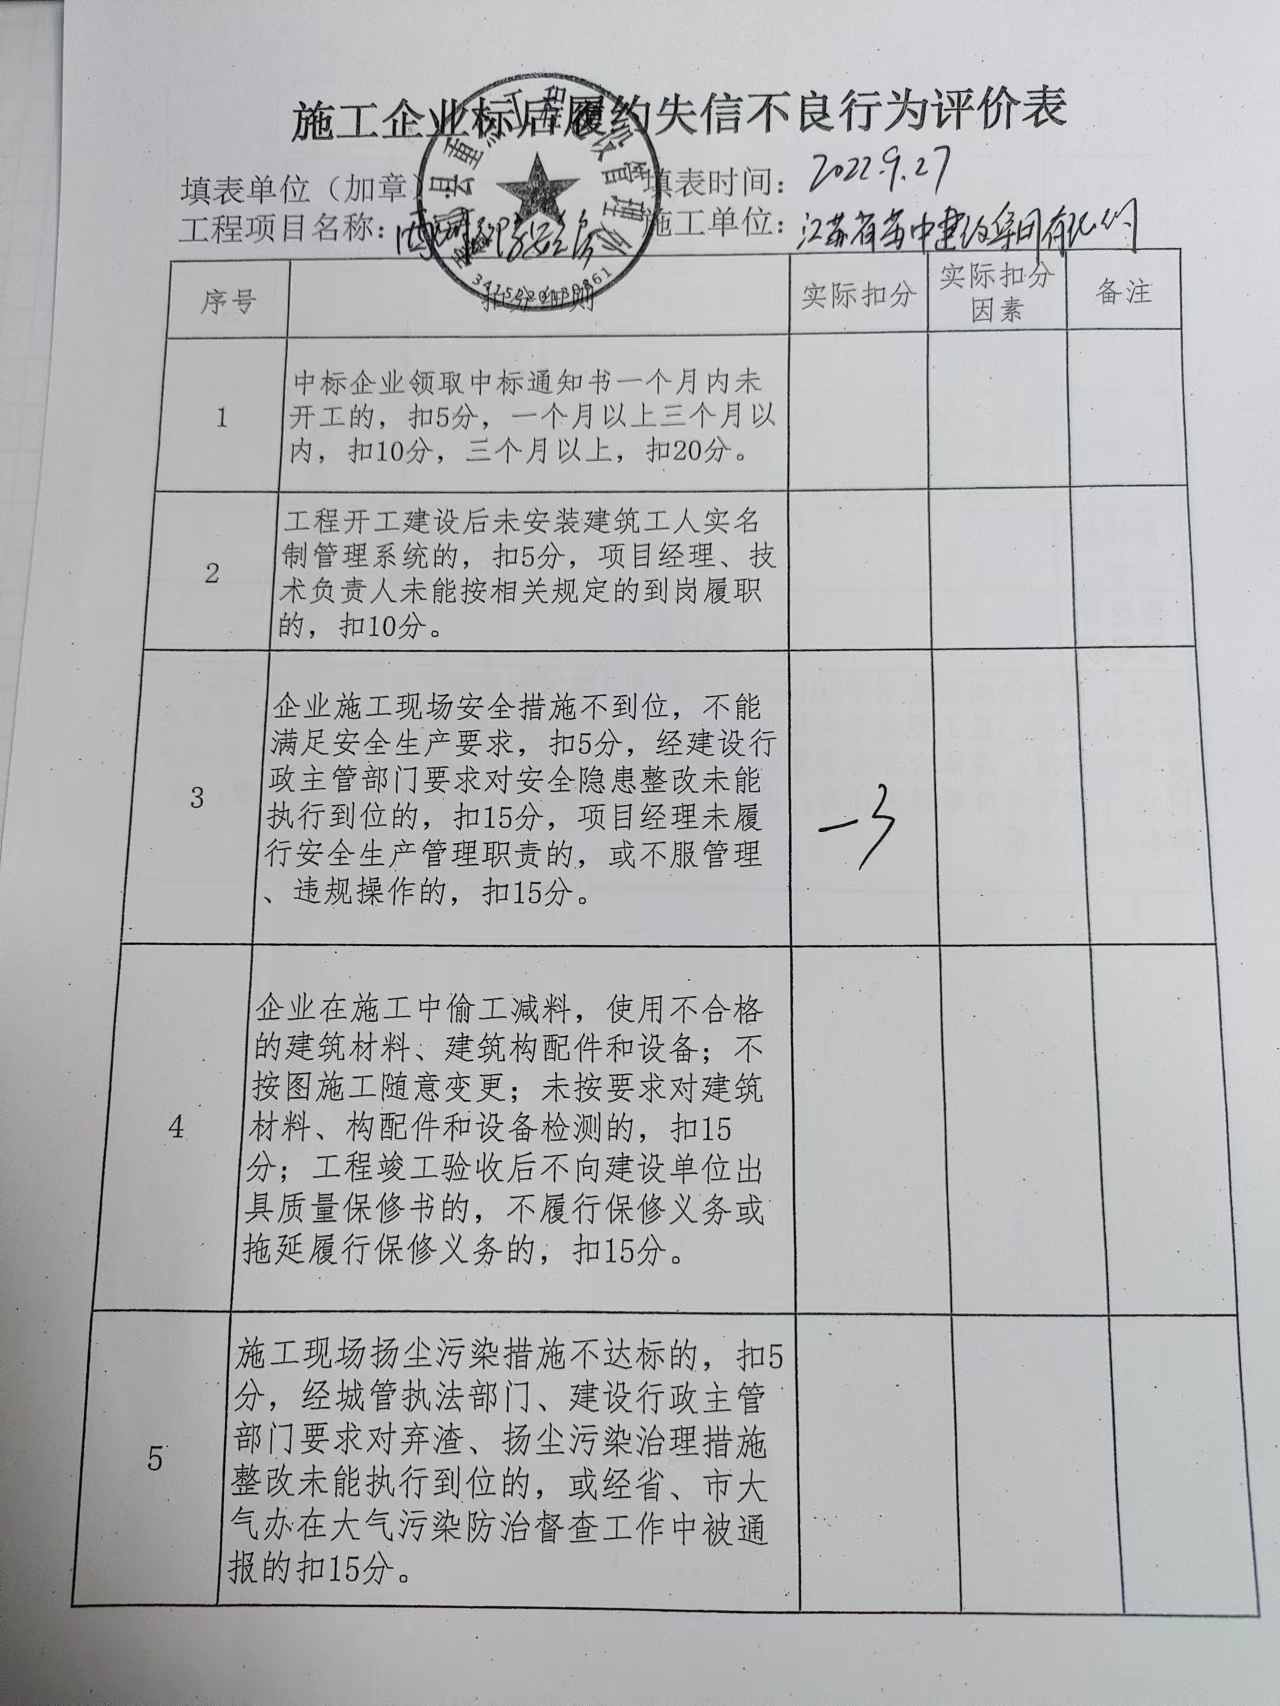 施工企业标后履约失信不良行为评价表
填表单位（加章） 填表时间：2022.9.27
工程项目名称： 安置房 施工单位：江苏省苏中建设集团有限公司
3415020130861
序号 扣分细则 实际扣分 实际扣分因素 备注
1
中标企业领取中标通知书一个月内未
开工的，扣5分，一个月以上三个月以
内，扣10分，三个月以上，扣20分。
2
工程开工建设后未安装建筑工人实名
制管理系统的，扣5分，项目经理、技
术负责人未能按相关规定的到岗履职
的，扣10分。
3
企业施工现场安全措施不到位，不能
满足安全生产要求，扣5分，经建设行
政主管部门要求对安全隐患整改未能
执行到位的，扣15分，项目经理未履
行安全生产管理职责的，或不服管理
、违规操作的，扣15分。
-3
4
企业在施工中偷工减料，使用不合格
的建筑材料、建筑构配件和设备；不
按图施工随意变更；未按要求对建筑
材料、构配件和设备检测的，扣15
分；工程竣工验收后不向建设单位出
具质量保修书的，不履行保修义务或
拖延履行保修义务的，扣15分。
5
施工现场扬尘污染措施不达标的，扣5
分，经城管执法部门、建设行政主管
部门要求对弃渣、扬尘污染治理措施
整改未能执行到位的，或经省、市大
气办在大气污染防治督查工作中被通
报的扣15分。